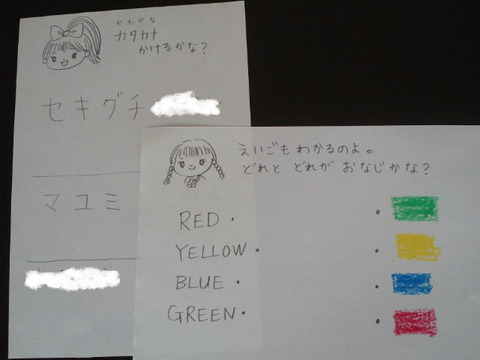 かたかな
カタカナ
かけるかな？
セキグチ
マユミ
えいごもわかるのよ。
どれと どれが おなじかな？
RED・
YELLOW・
BLUE・
GREEN・